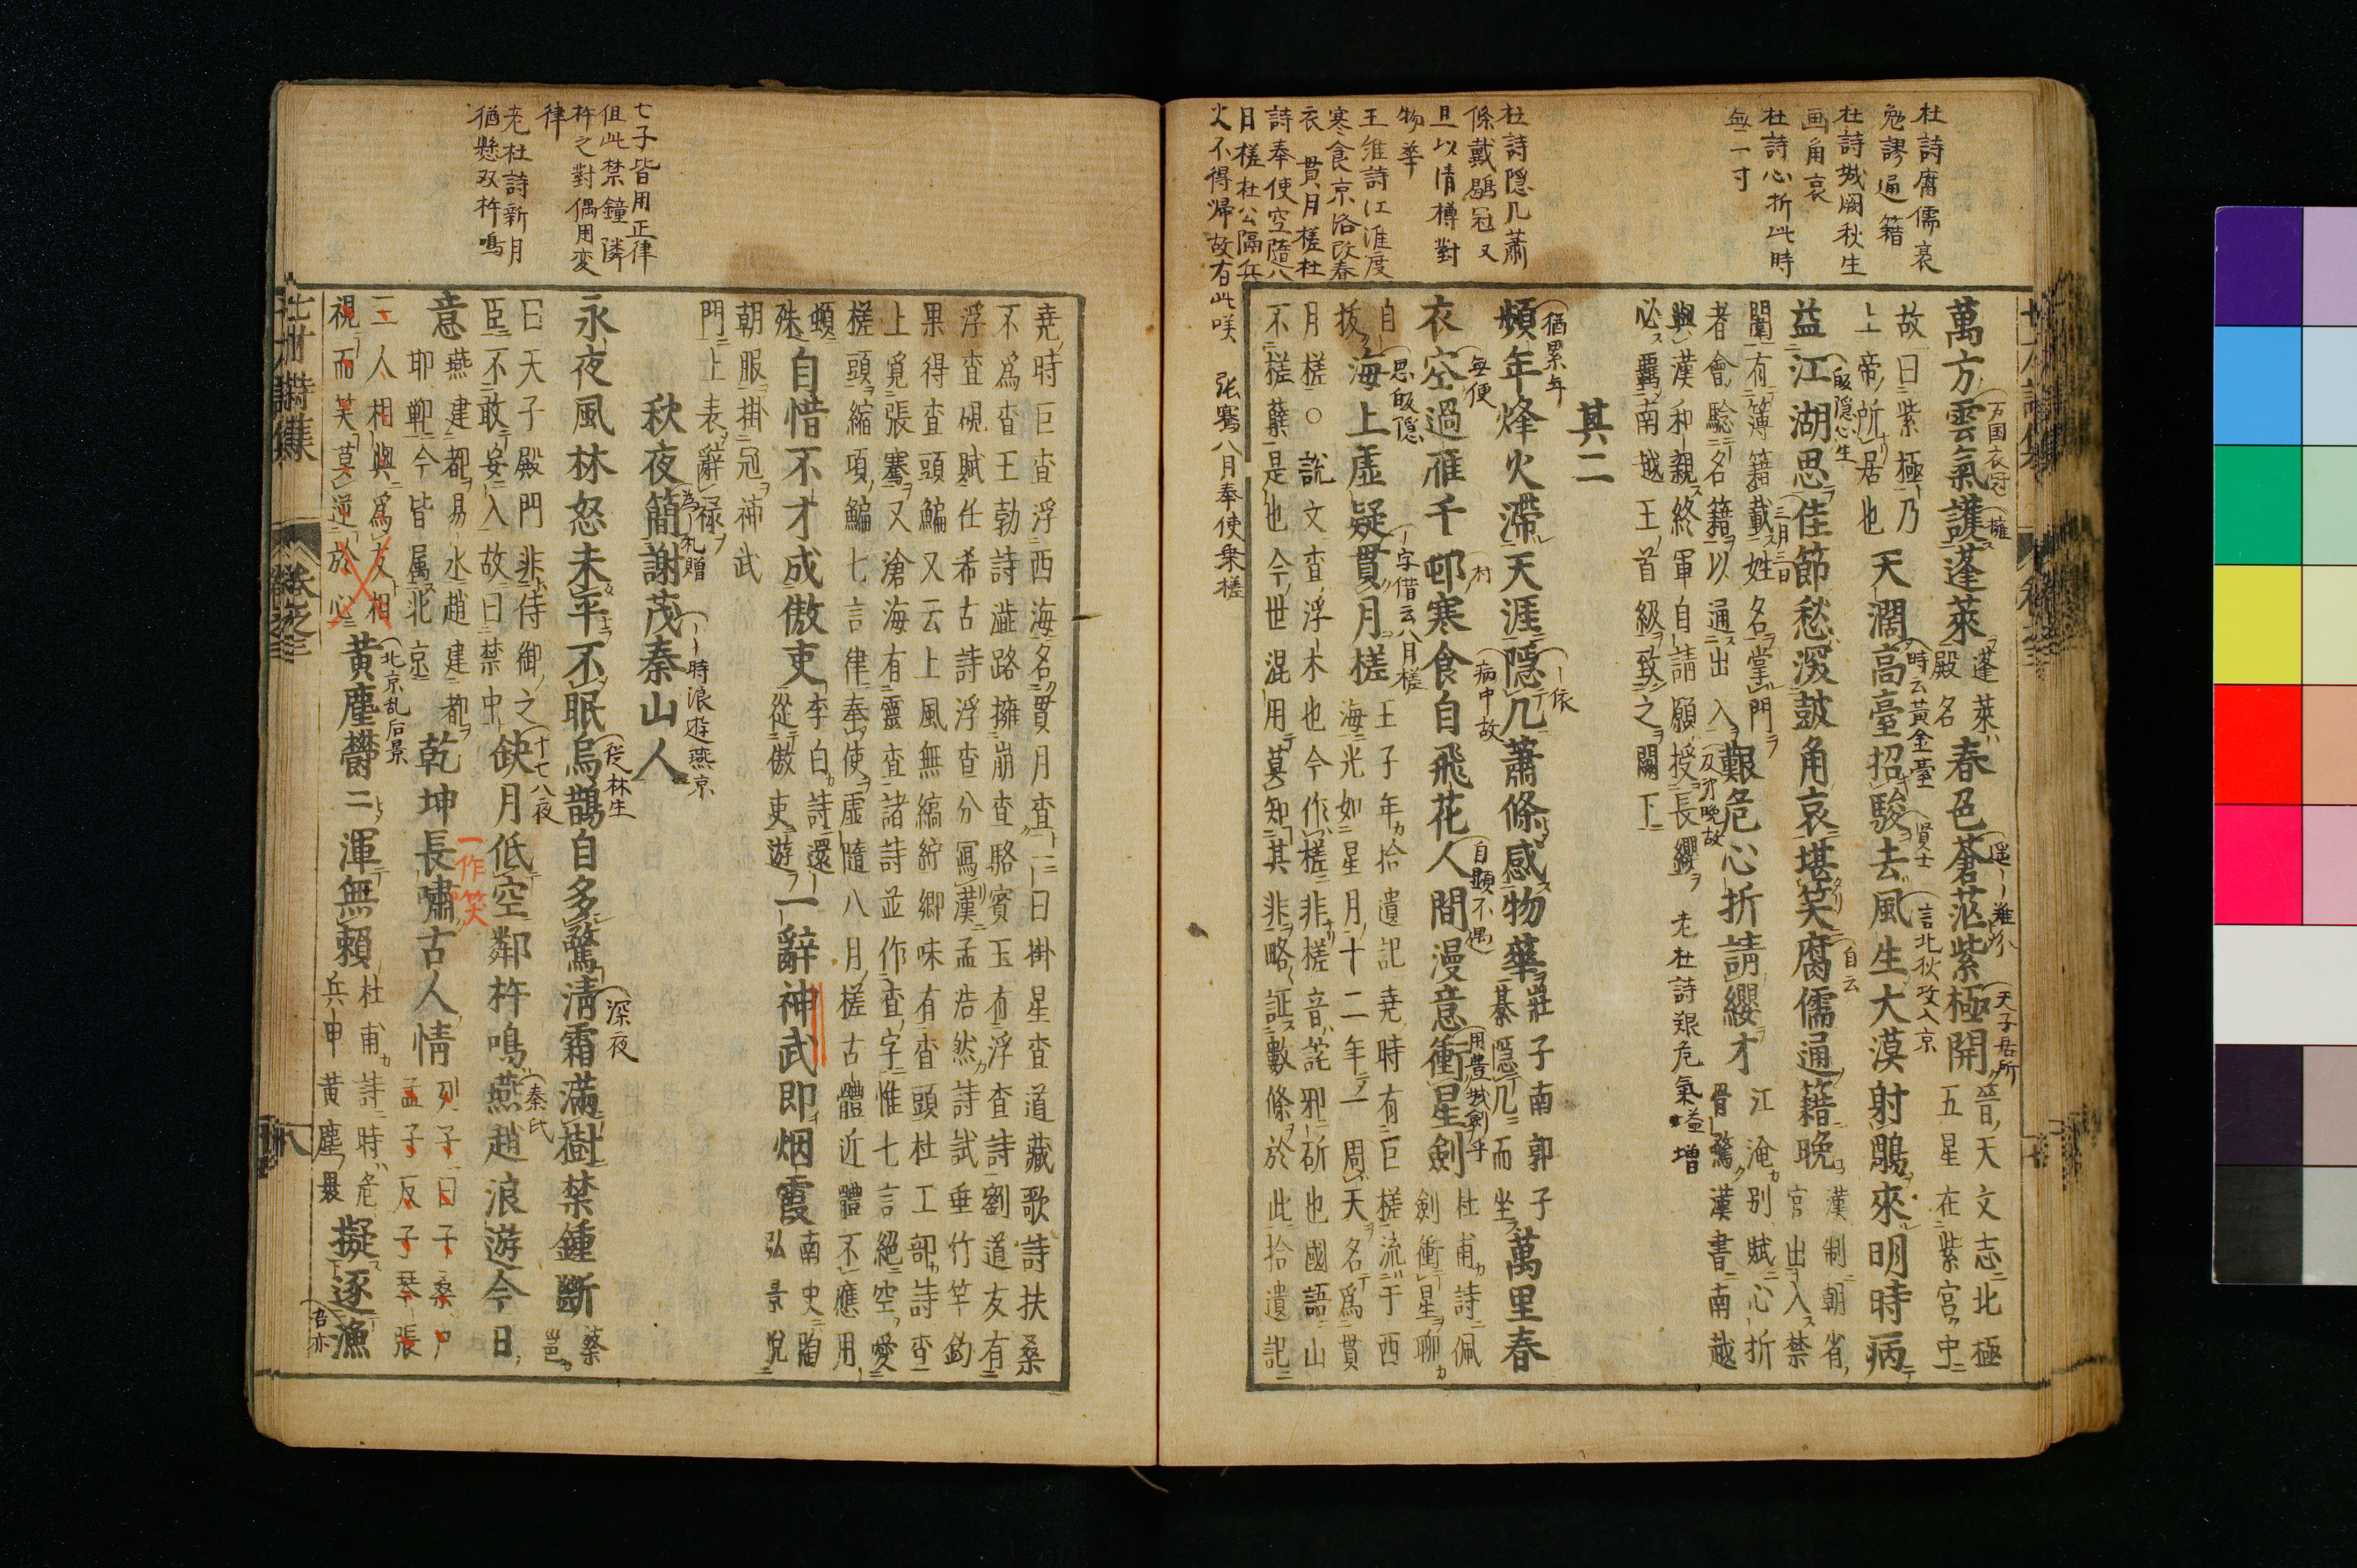 杜詩腐儒衰
勉謬通籍
杜詩城闕秋生
画角哀
杜詩心折此時
無一寸
杜詩隠几蕭
條戴鶡冠又
且以情樽對
物華
王維詩江淮度
寒食京洛改春
衣 貫月槎杜
詩奉使空隨八
日槎杜公隔兵
火不得帰故有此嘆 張騫八月奉使乗槎
萬方雲氣護蓬萊 蓬萊殿名 春色蒼茫紫極開 晉天文志北極五星在紫宮中
故曰紫極乃上帝所居也 天濶高臺招駿去 風生大漠射鵰來 明時病
益江湖思 佳節愁深鼓角哀 堪笑腐儒通籍晚 漢制朝省官出入禁
闥有簿籍載姓名掌門者會驗名籍以通出入 艱危心折請纓才 江淹别賦心折骨驚漢書南越
與漢和親終軍自請願授長纓必羈南越王首級致之闕下
老杜詩艱危氣益増
其二
頻年烽火滯天涯 隱几蕭條感物華 莊子南郭子綦隱几而坐 萬里春
衣空過雁 千邨寒食自飛花 人間漫意衝星劍 杜甫詩佩劍衝星聊
自拔 海上虛疑貫月槎 王子年拾遺記堯時有巨槎流于西海光如星月十二年一周天名爲貫
月槎○說文査浮木也今作槎非槎音詫邪斫也國語山
不槎蘖是也今世混用莫知其非略証數條於此拾遺記
堯時巨査浮西海名貫月査一曰掛星査道藏歌詩扶桑
不爲査王勃詩澁路擁崩査駱賓王有浮査詩劉道友有
浮査硯賦任希古詩浮査分寫漢孟浩然詩試垂竹竿釣
果得査頭鯿又云上風無縞紵鄉味有査頭杜工部詩査
上覓張騫又滄海有靈査諸詩並作査字惟七言絕空愛
槎頭縮項鯿七言律奉使虛隨八月槎古體近體不應用
頓殊 自惜不才成傲吏 李白詩還從傲吏遊 一辭神武即烟霞 南史陶弘景脫
朝服掛冠神武門上表辭祿
秋夜簡謝茂秦山人
永夜風林怒未平 不眠烏鵲自多驚 淸霜滿樹禁鍾斷 蔡邕
曰天子殿門非侍御之臣不敢妄入故曰禁中 缺月低空鄰杵鳴 燕趙浪遊今日
意 燕建都易水趙建都邯鄲今皆属北京 乾坤長嘯古人情 列子曰子桑戶孟子反子琴張
三人相與爲友相視而笑莫逆於心 黄塵鬱二渾無賴 杜甫詩時危兵甲黄塵裏 擬逐漁
七子皆用正律
但此禁鐘隣
杵之對偶用変
律
老杜詩新月
猶懸双杵鳴
一作笑
猶累年
無便
思皈隠
病中故
自顕不遇
深夜
秦氏
十七八夜
北京乱后景
卷之三
八